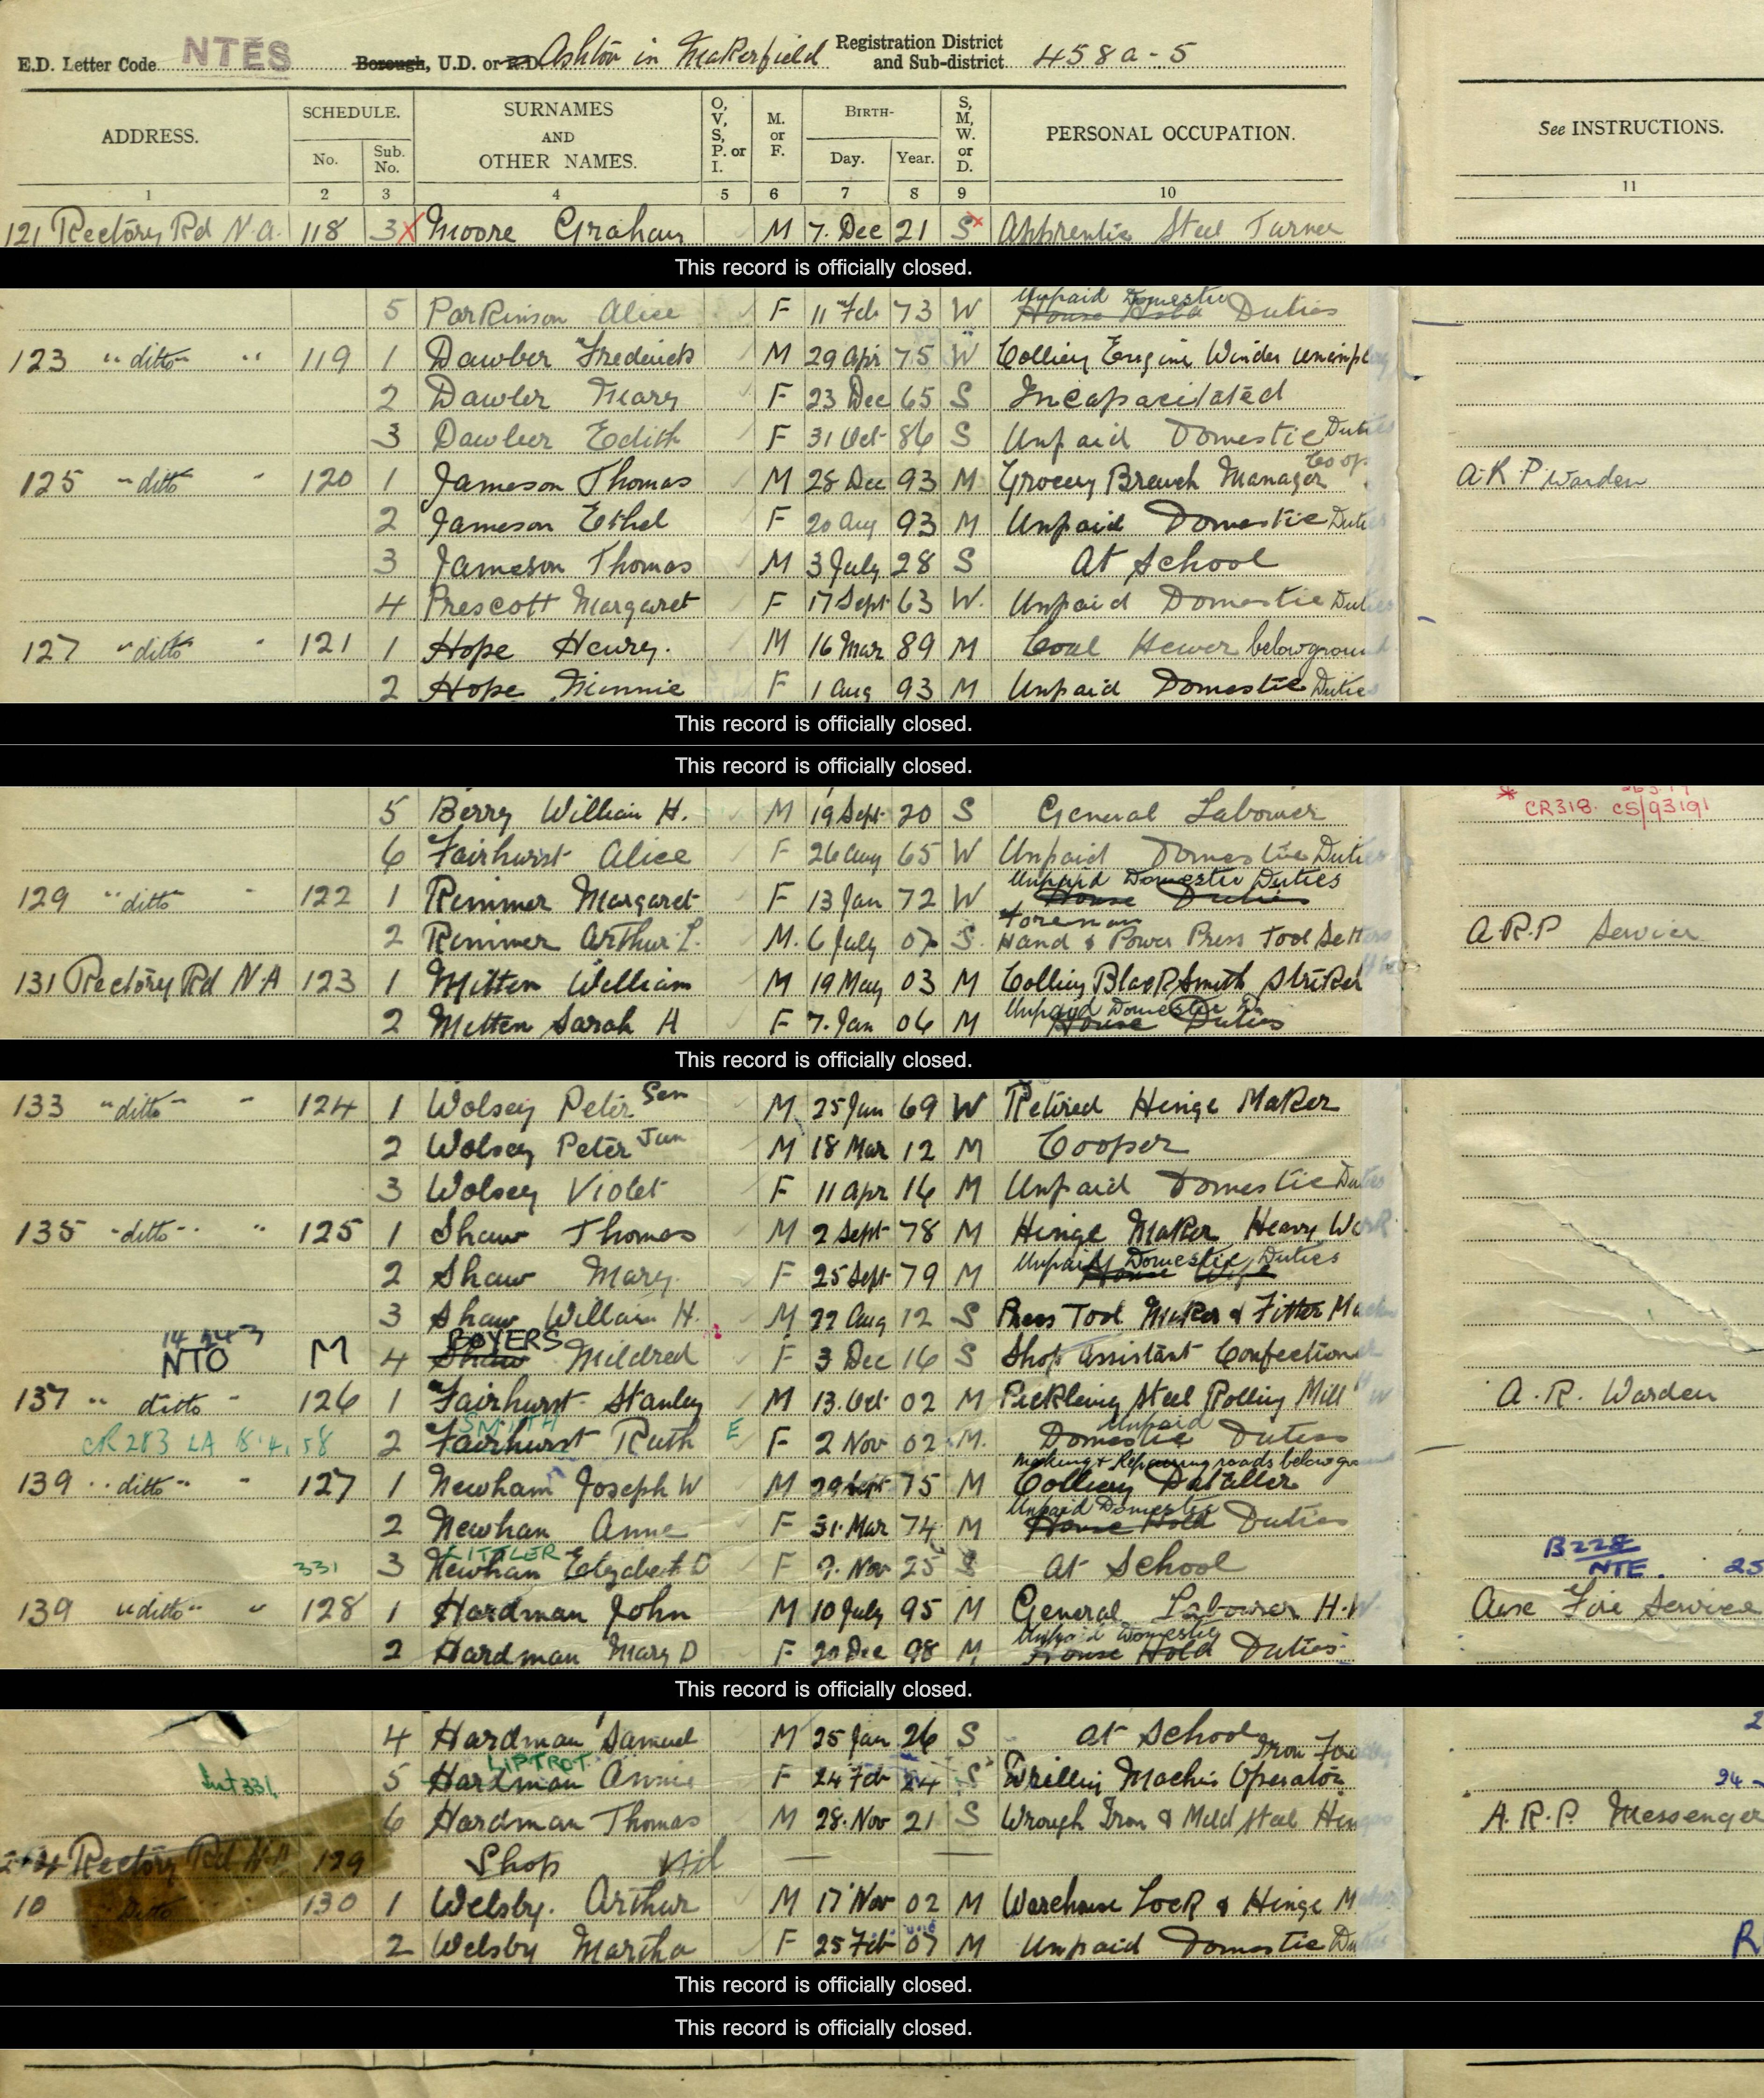 E.D. Letter Code NTES Borough, U.D. or R.D. Ashton in Makerfield Registration District and Sub-district 458a-5
ADDRESS. SCHEDULE. No. Sub. No. SURNAMES AND OTHER NAMES. O, V, S, P. or I. M. or F. BIRTH- Day. Year. S, M, W. or D. PERSONAL OCCUPATION. See INSTRUCTIONS.
1 2 3 4 5 6 7 8 9 10 11
121 Rectory Rd N.A. 118 3 Moore Graham M 7. Dec 21 S Apprentice Steel Turner
This record is officially closed.
5 Parkinson Alice F 11 Feb 73 W Unpaid Domestic House Hold Duties
123 "ditto" " 119 1 Dawber Frederick M 29 Apr 75 W Colliery Engine Winder
2 Dawber Mary F 23 Dec 65 S Incapacitated
3 Dawber Edith F 31 Oct 86 S Unpaid Domestic Duties
125 "ditto " 120 1 Jameson Thomas M 28 Dec 93 M Grocery Branch Manager Coop A.R.P Warden
2 Jameson Ethel F 20 Aug 93 M Unpaid Domestic Duties
3 Jameson Thomas M 3 July 28 S At School
4 Prescott Margaret F 17 Sept 63 W. Unpaid Domestic Duties
127 "ditto " 121 1 Hope Henry. M 16 Mar 89 M Coal Hewer below ground
2 Hope Minnie F 1 Aug 93 M Unpaid Domestic Duties
This record is officially closed.
This record is officially closed.
5 Berry William H. M 19 Sept 20 S General Labourer CR318. CS/93191
6 Fairhurst Alice F 26 Aug 65 W Unpaid Domestic Duties
129 "ditto" " 122 1 Rimmer Margaret F 13 Jan 72 W Unpaid Domestic Duties House Duties
2 Rimmer Arthur L. M. 6 July 07 S. Foreman Hand & Power Press Tool Setters A.R.P Service
131 Rectory Rd N.A 123 1 Mitten William M 19 May 03 M Colliery BlackSmith Striker
2 Mitten Sarah H F 7. Jan 06 M Unpaid Domestic D House Duties
This record is officially closed.
133 "ditto" " 124 1 Wolsey Peter Sen M 25 Jan 69 W Retired Hinge Maker
2 Wolsey Peter Jun M 18 Mar 12 M Cooper
3 Wolsey Violet F 11 Apr 16 M Unpaid Domestic Duties
135 "ditto" " 125 1 Shaw Thomas M 2 Sept 78 M Hinge Maker Heavy Work
2 Shaw Mary. F 25 Sept 79 M Unpaid Domestic Duties House Wife
3 Shaw William H. M 22 Aug 12 S Press Tool Maker & Fitter
NTO M 4 Shaw BOYERS Mildred F 3 Dec 16 S Shop Assistant Confectioner
137 " ditto " 126 1 Fairhurst Stanley M 13. Oct 02 M Pickleing Steel Rolling Mill A.R. Warden
CR 283 LA 18.4.58 2 Fairhurst SMITH Ruth E F 2 Nov 02 M. Unpaid Domestic Duties
139 "ditto" " 127 1 Newham Joseph W M 29 Sept 75 M Making & Repairing roads below Colliery Dataller
2 Newham Anne F 31. Mar 74 M Unpaid Domestic House Hold Duties
331 3 Newham LITTLER Elizabeth D F 7. Nov 25 S At School B228 NTE. 25
139 "ditto" " 128 1 Hardman John M 10 July 95 M General Labourer H.W Auxe Fire Service
2 Hardman Mary D F 20 Dec 98 M Unpaid Domestic House Hold Duties
This record is officially closed.
4 Hardman Samuel M 25 Jan 26 S At School
331 5 Hardman LIPTROT Annie F 24 Feb 24 S Drilling Machin Operator Iron 24
6 Hardman Thomas M 28. Nov 21 S Wrough Iron & Mild Steel Hinges A.R.P. Messenger
Rectory Rd N.A 129 Shop Nil
10 Ditto 130 1 Welsby. Arthur M 17 Nov 02 M Warehouse Lock & Hinge
2 Welsby Martha F 25 Feb 07 M Unpaid Domestic Duties R
This record is officially closed.
This record is officially closed.